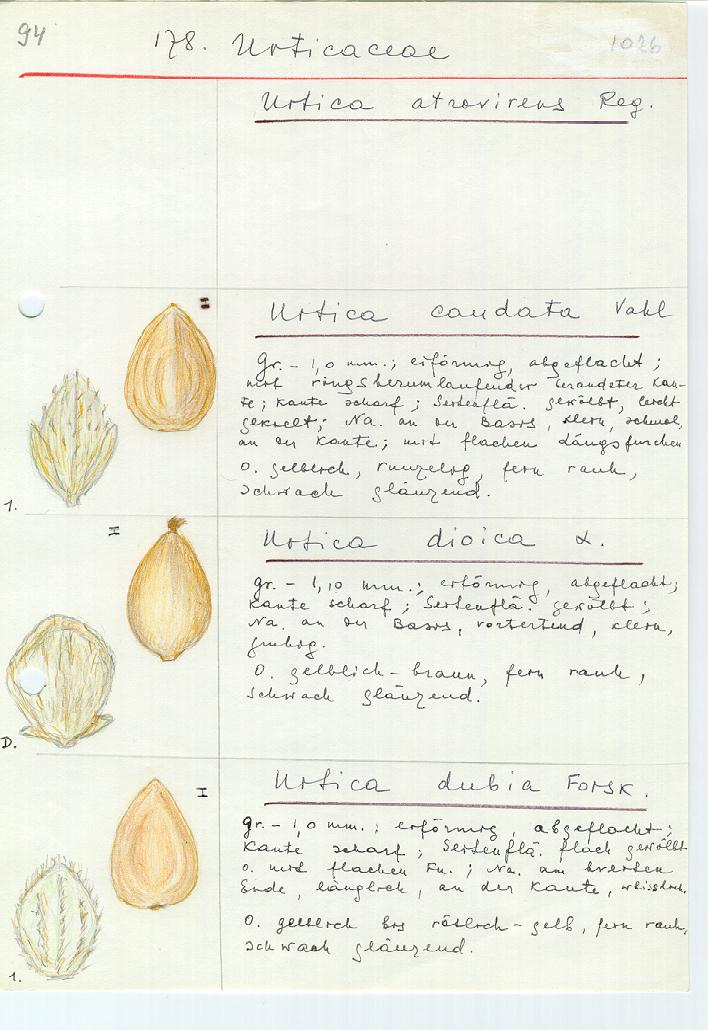 94
178. Urticaceae
1026
Urtica atrovirens Reg.
Urtica caudata Vahl
gr. - 1,0 mm.; eiförmig, abgeflacht;
mit ringsherumlaufender berandeter Kan-
te; Kante scharf; Seitenflä. gewölbt, leicht
gekielt; Na. an der Basis, klein, schmal,
an der Kante; mit flachen Längsfurchen
O. gelblich, runzelig, fein rauh,
schwach glänzend.
1.
Urtica dioica L.
gr. - 1,10 mm.; eiförmig, abgeflacht;
Kante scharf; Seitenflä. gewölbt;
Na. an der Basis, vortretend, klein,
grubig.
O. gelblich-braun, fein rauh,
schwach glänzend.
D.
Urtica dubia Forsk.
gr. - 1,0 mm.; eiförmig, abgeflacht;
Kante scharf; Seitenflä. flach gewölbt
o. mit flachen Fu.; Na. am breiten
Ende, länglich, an der Kante,
O. gelblich bis rötlich-gelb, fein rauh,
schwach glänzend.
1.